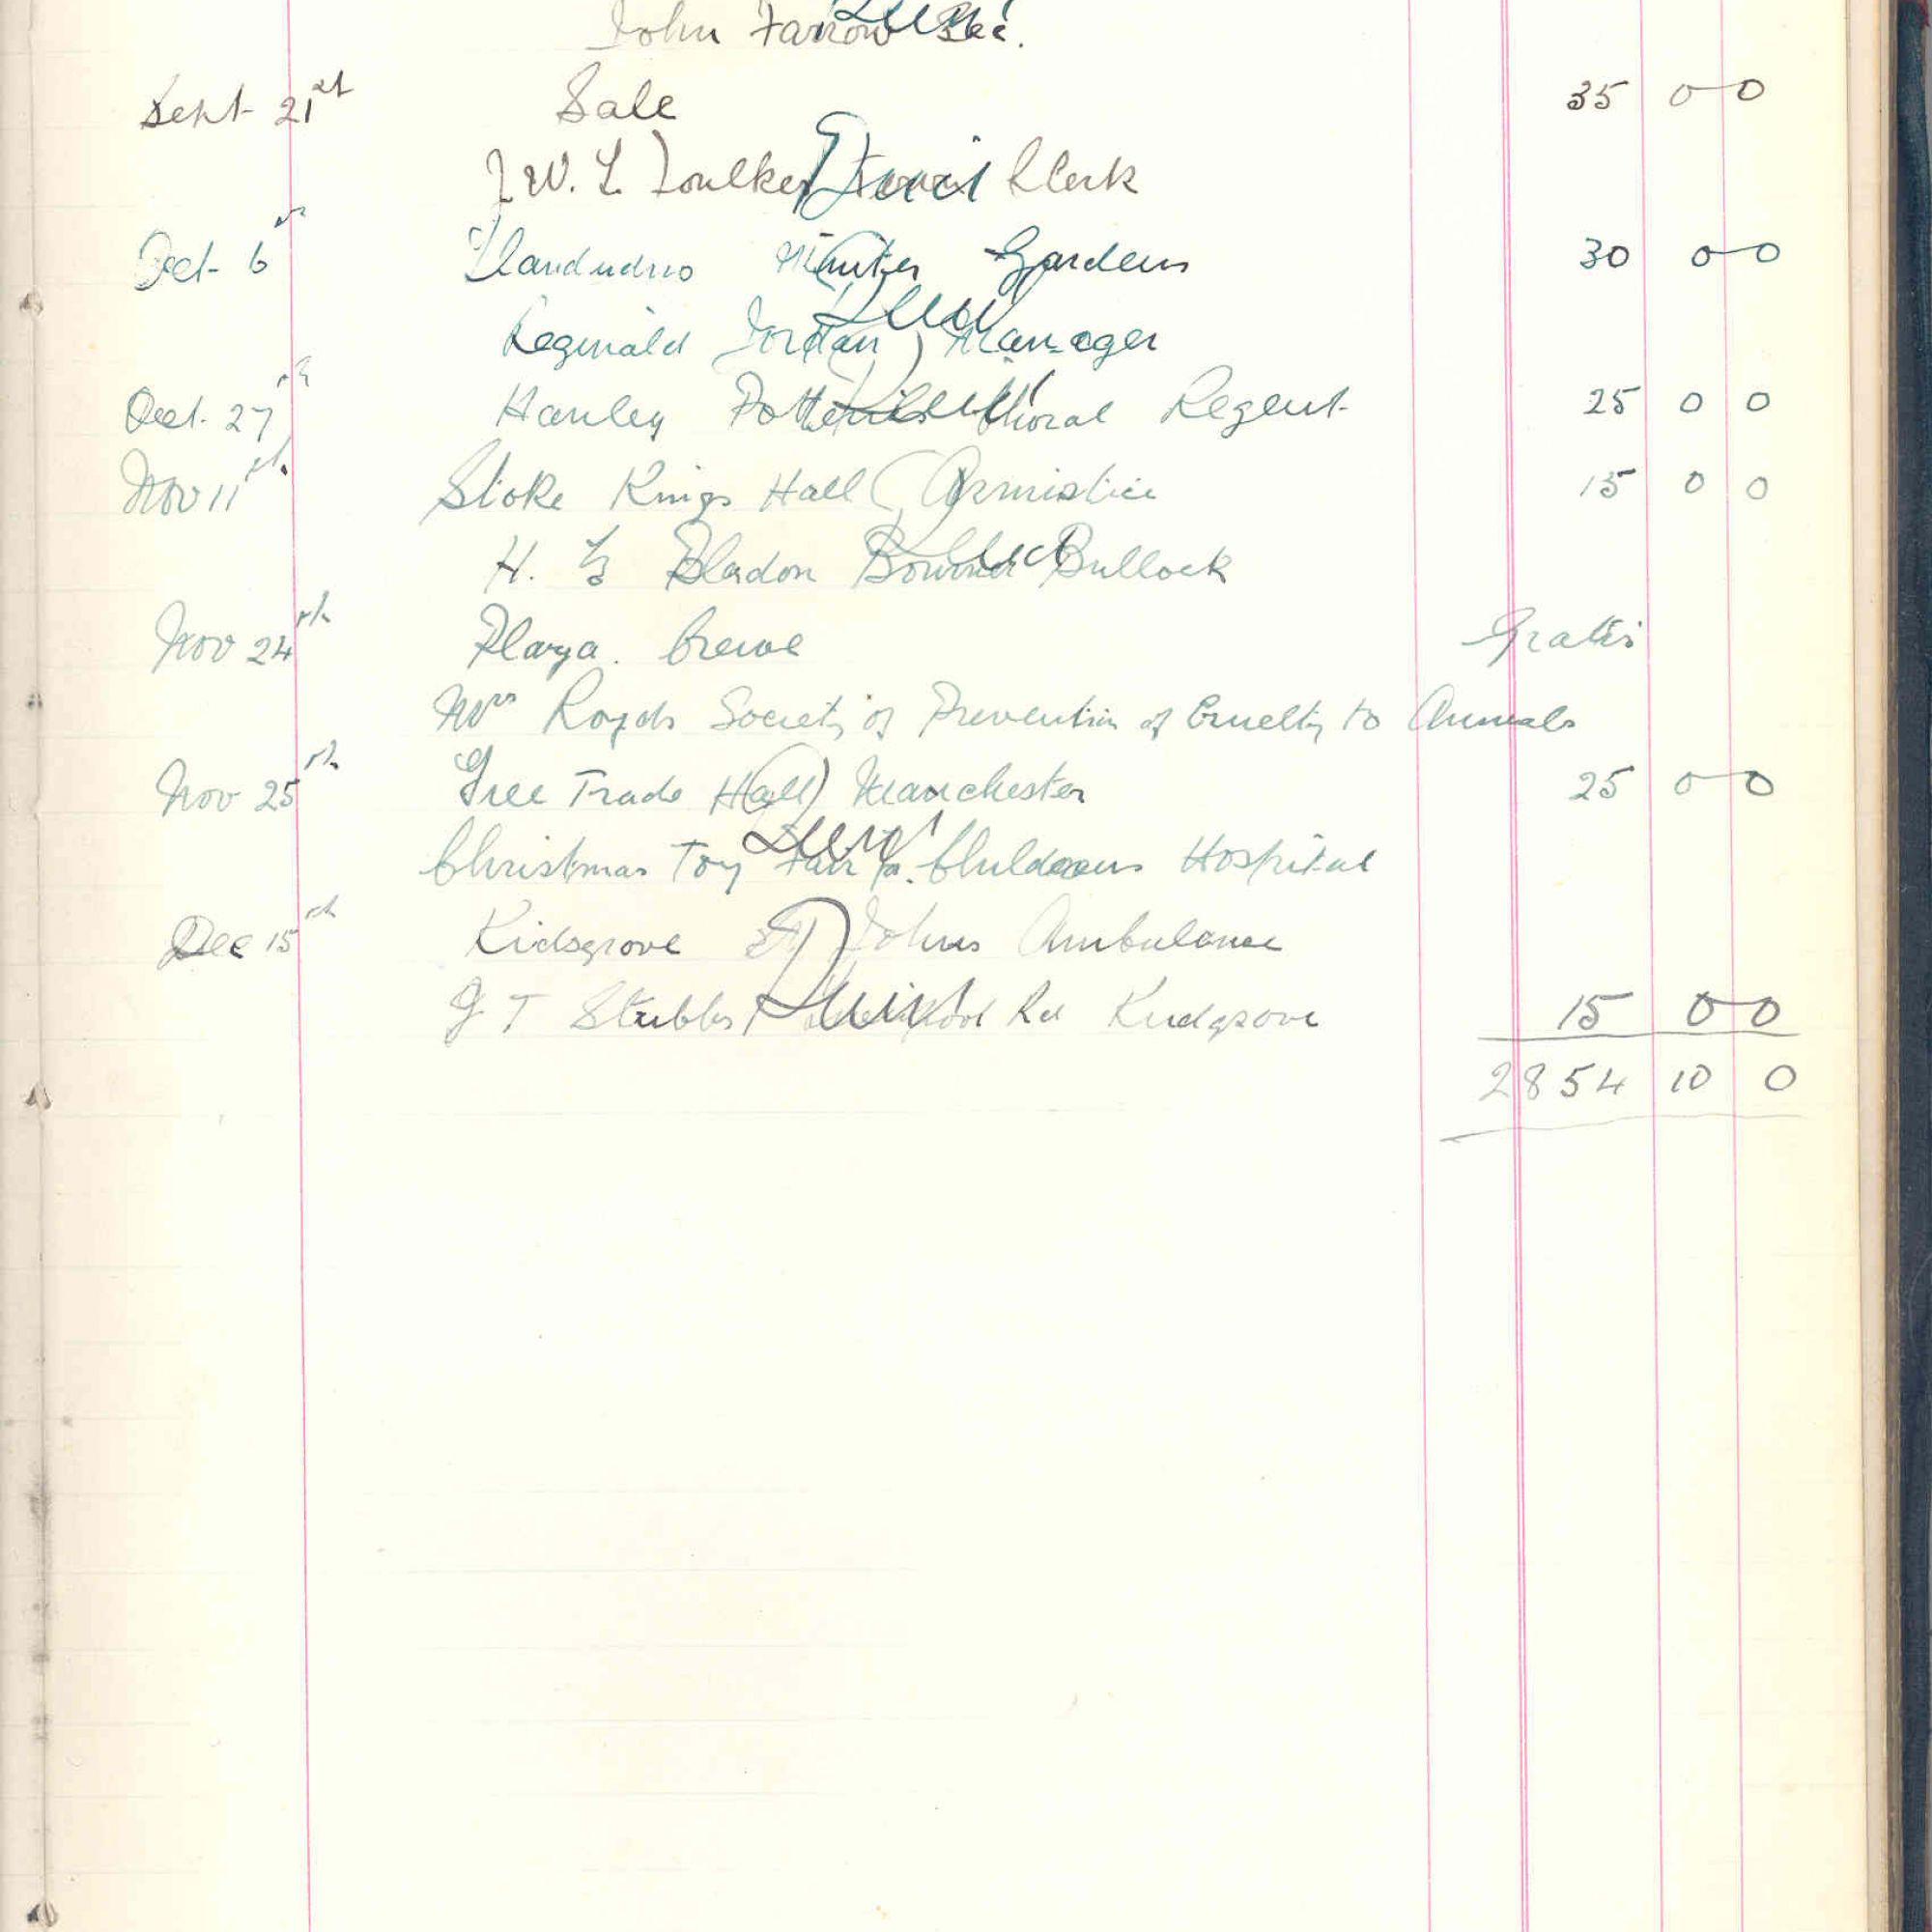 John Farrow Sec.
Sept 21st Sale 35 0 0
W. L. Foulkes Town Clerk
Oct 6th Llandudno Winter Gardens 30 0 0
Reginald Jordan Manager
Oct. 27th Hanley Potteries Choral Regent 25 0 0
Nov 11th Stoke Kings Hall Armistice 15 0 0
H. Bladon Bullock
Nov 24th Plaza. Crewe Gratis
Mrs Royds Society of Prevention of Cruelty to Animals
Nov 25th Free Trade Hall Manchester 25 0 0
Christmas Toy Fair Childrens Hospital
Dec 15th Kidsgrove St Johns Ambulance
G T Stubbs Liverpool Rd Kidsgrove 15 0 0
2854 10 0